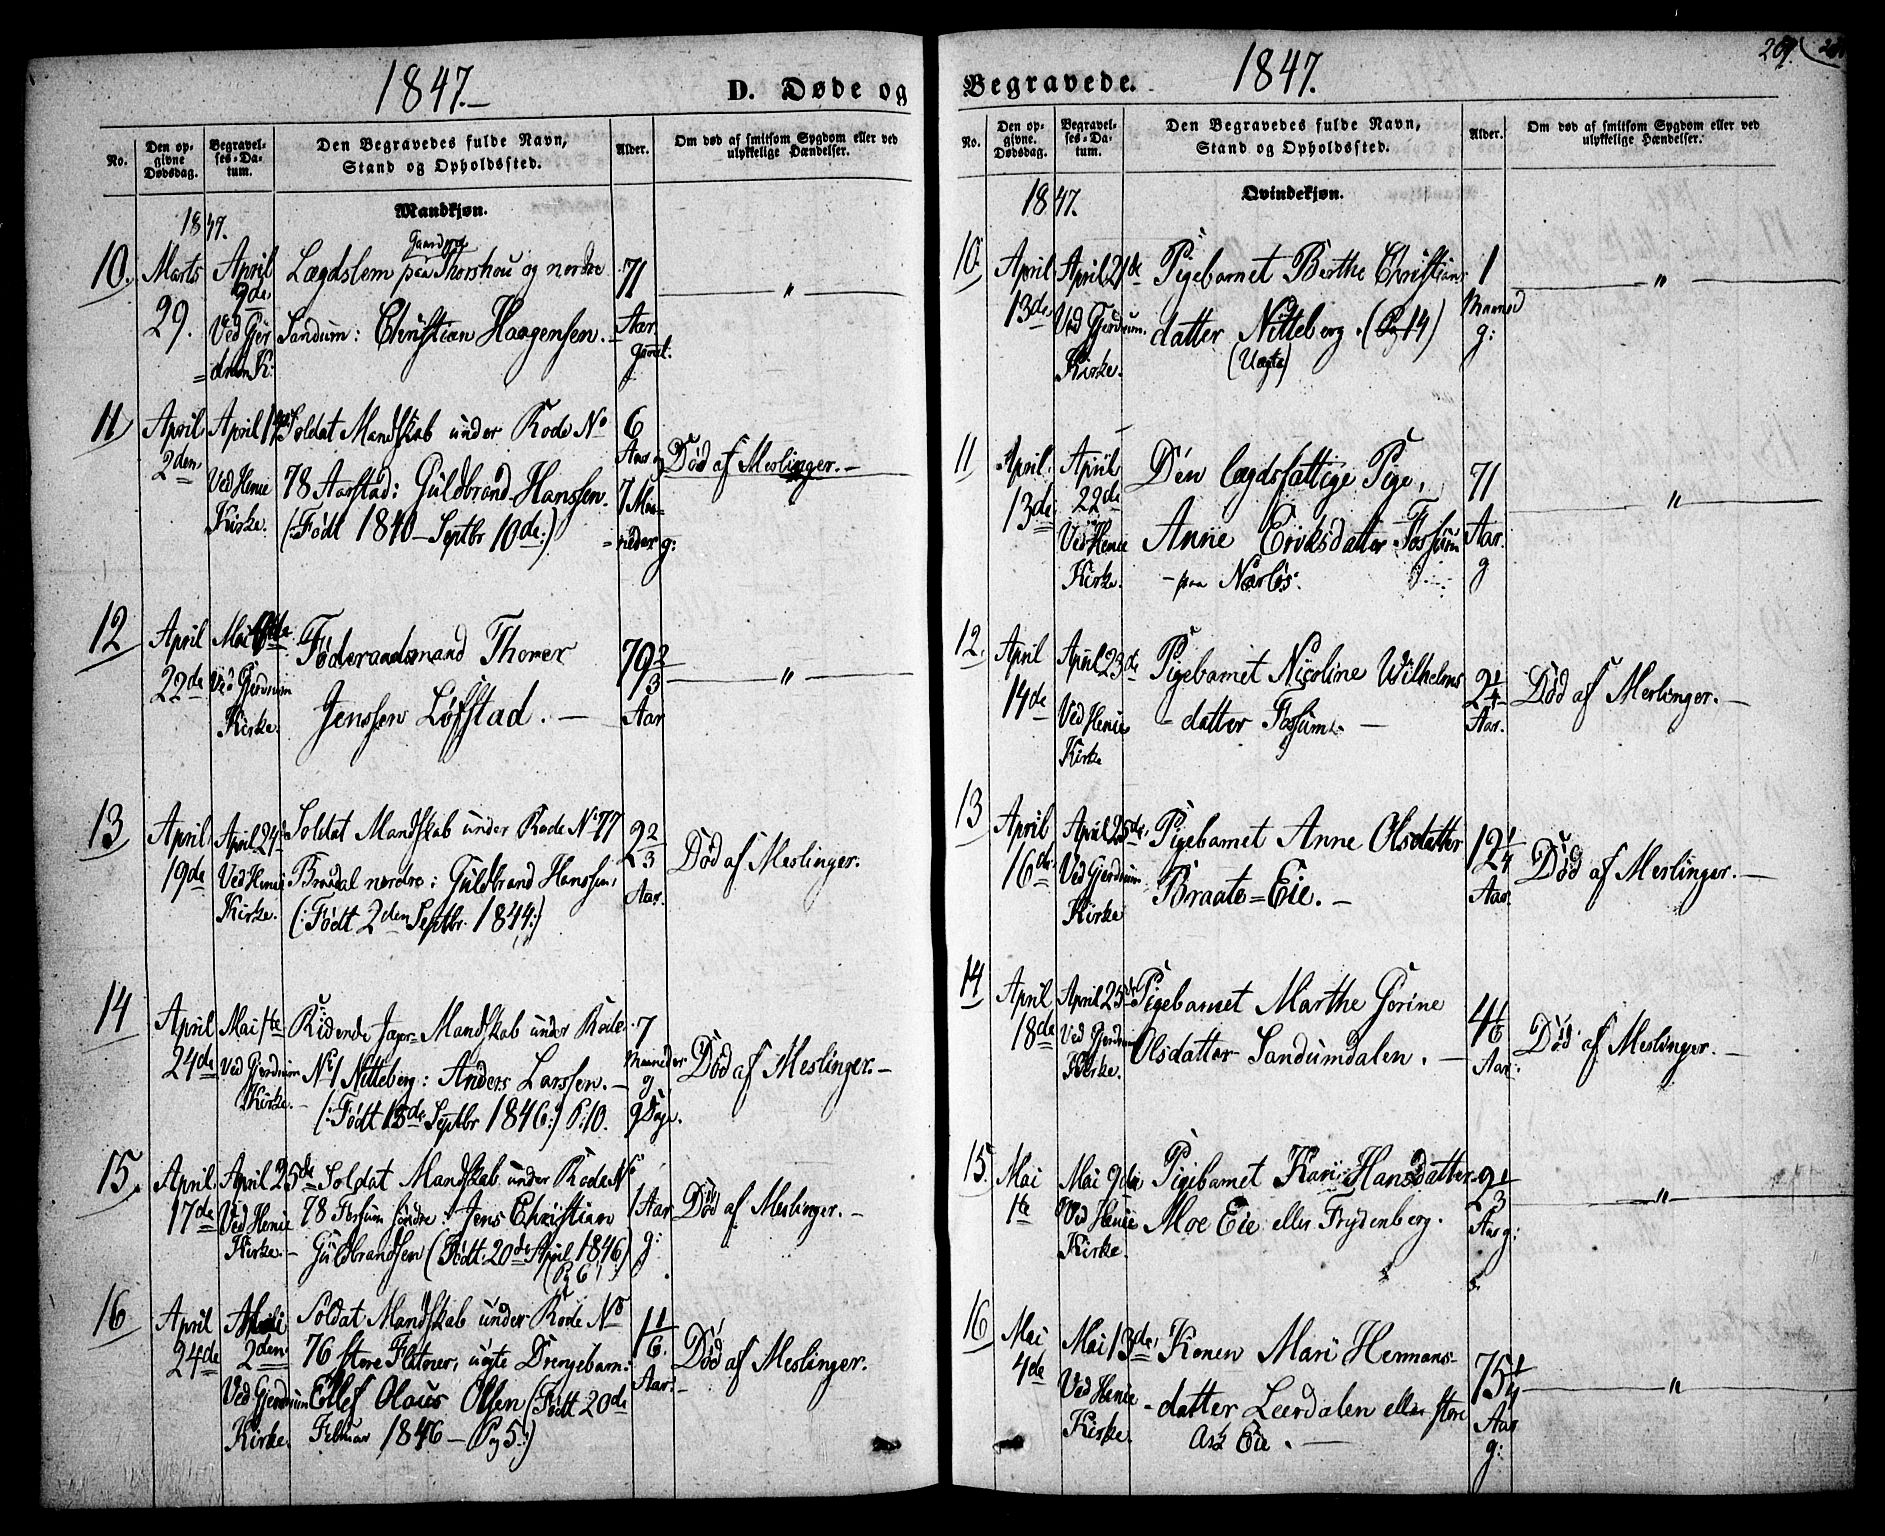 1847.
D. Døde og
No.
Den op-
givne
Dødsdag.
Begravel-
ses-Da-
tum.
Den Begravedes fulde Navn,
Stand og Opholdssted.
Alder.
Om død af smitsom Sygdom eller ved
ulykkelige Hændelser.
1847.
Mandkjøn.
10.
Marts
29.
April
9de
Ved Gjer
drum K.
Gaarderne
Lægdslem paa Thorshou og nordre
Sandum: Christian Haagensen.
71
Aar
gaml.
"
11
April
2den
April 14
Ved Henie
Kirke.
Soldat Mandskab under Rode No
78 Aarstad: Guldbrand Hanssen.
(:Født 1840 – Septbr 10de:)
6
Aar og
7 Maa-
neder g:
Død af Meslinger. –
12
April
22de
Mai
Ved Gjerdrum
Kirke.
Føderaadsmand Thorer
Jenssen Løfstad. –
79 2/3
Aar
"
13
April
19de
April 24
Ved Henie
Kirke.
Soldat Mandskab under Rode No 77
Braadal nordre: Guldbrand Hanssen,
(:Født 2den Septbr. 1844:)
2 2/3
Aar.
Død af Meslinger.
14
April
24de
Mai 1te
Ved Gjerdrum
Kirke.
Ridende Jæger-Mandskab under Rode
No 1 Nitteberg: Anders Larssen. –
(:Født 15de Septbr 1846:) P:10.
7
Maaneder
og
9 Dage.
Død af Meslinger. –
15.
April
17de
April 25de
Ved Henie
Kirke. –
Soldat Mandskab under Rode No
78 Fossum søndre: Jens Christian
Guldbrandsen (Født 20de April 1846)
(Pg 6)
1 Aar
g:
Død af Meslinger. –
16
April
24de
2den
Ved Gjerdrum
Kirke.
Soldat Mandskab under Rode No
76 store Flatner, uægte Drengebarn:
Ellef Olaus Olsen (:Født 20de
Februar 1846 – Pg 5:)
1 1/6
Aar.
Død af Meslinger.
Begravede.
1847.
209.
No.
Den op-
givne
Dødsdag.
Begravel-
ses-Da-
tum.
Den Begravedes fulde Navn,
Stand og Opholdssted.
Alder.
Om død af smitsom Sygdom eller ved
ulykkelige Hændelser.
1847.
Qvindekjøn.
10.
April
13de
April 21de
Ved Gjerdrum
Kirke.
Pigebarnet Berthe Christians
datter Nitteberg. (Pg 14)
(Uægte)
1
Maaned
g:
"
11
April
13de
April
22de
Ved Henie
Kirke.
Den lægdsfattige Pige,
Anne Eriksdatter Fossum
– paa Nærløs.
71
Aar.
g
"
12.
April
14de
April 23de
Ved Henie
Kirke
Pigebarnet Nicoline Wilhelms
– datter Fossum. –
2 1/4
Aar.
Død af Meslinger. –
13
April
16de
April 25de
Ved Gjerdrum
Kirke
Pigebarnet Anne Olsdatter
Braate=Eie. –
12 1/4
Aar.
Død af Meslinger. –
14
April
18de
April 25de
Ved Gjerdrum
Kirke.
Pigebarnet Marthe Gorine
Olsdatter Sandumdalen. –
4 1/6
Aar.
Død af Meslinger. –
15.
Mai
1te
Mai 9de
Ved Henie
Kirke.
Pigebarnet Kari Hansdatter
Moe Eie eller Frydenberg.
2 1/3
Aar g:
"
16
Mai
4de
Mai 13de
Ved Henie
Kirke.
Konen Mari Hermans-
– datter Leerdalen eller store
Ask Eie. –
75 1/4
Aar
g:
"